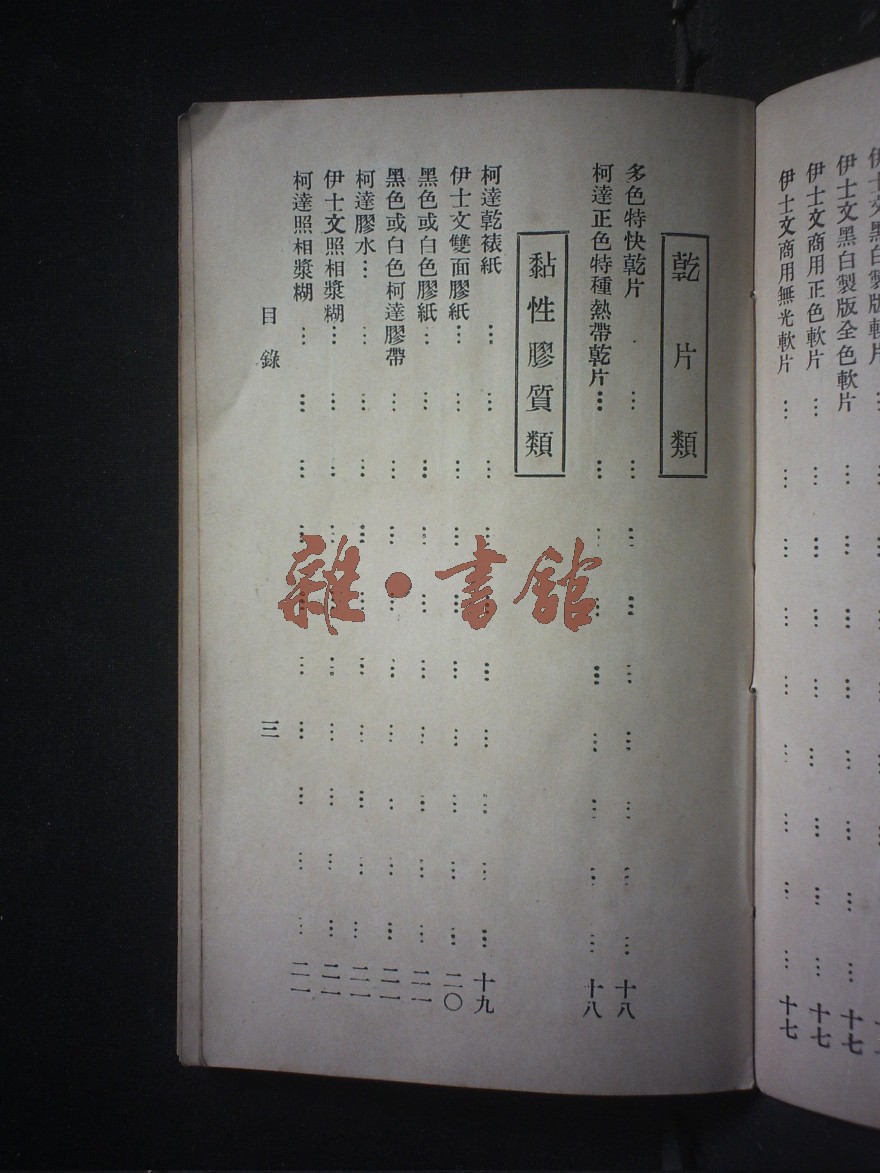 伊士文黑白製版軟片
伊士文黑白製版全色軟片…………十七
伊士文商用正色軟片…………十七
伊士文商用無光軟片…………十七
乾片類
多色特快乾片…………十八
柯達正色特種熱帶乾片…………十八
黏性膠質類
柯達乾裱紙…………十九
伊士文雙面膠紙…………二〇
黑色或白色膠紙…………二一
黑色或白色柯達膠帶…………二一
柯達膠水…………二一
伊士文照相漿糊…………二一
柯達照相漿糊…………二一
目錄
三
雜·書館